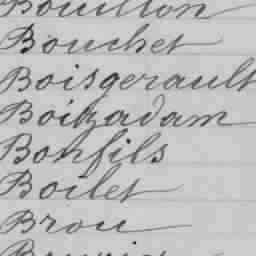 Bouillon
Bouchet
Boisgerault
Boizadam
Bonfils
Boilet
Brou